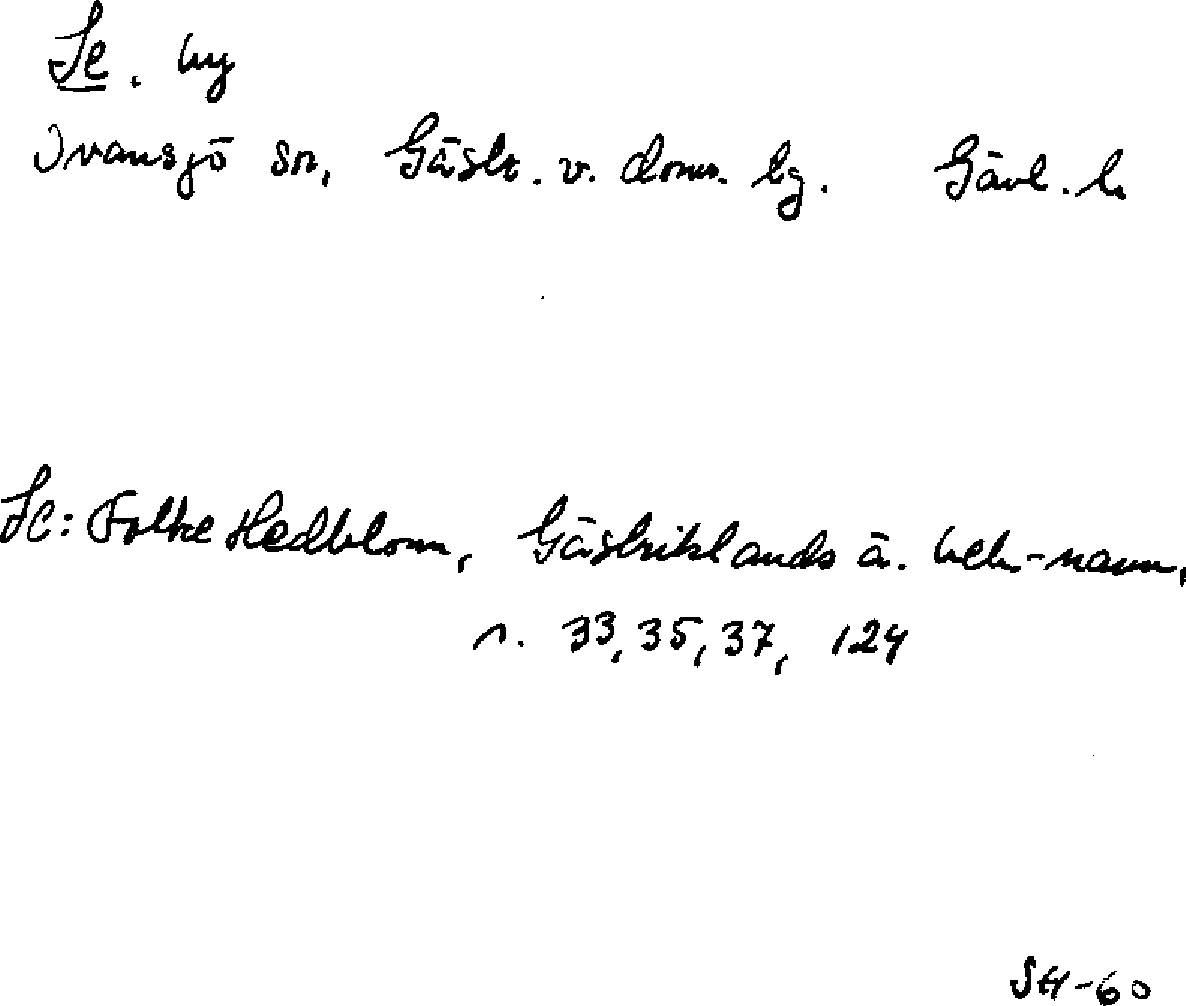 Se. by
Ovansjö sn, Gästr. v. doms. lg. Gävl. l.
Se: Folke Hedblom, Gästriklands ä. beb-namn,
s. 33, 35, 37, 124
SH-60